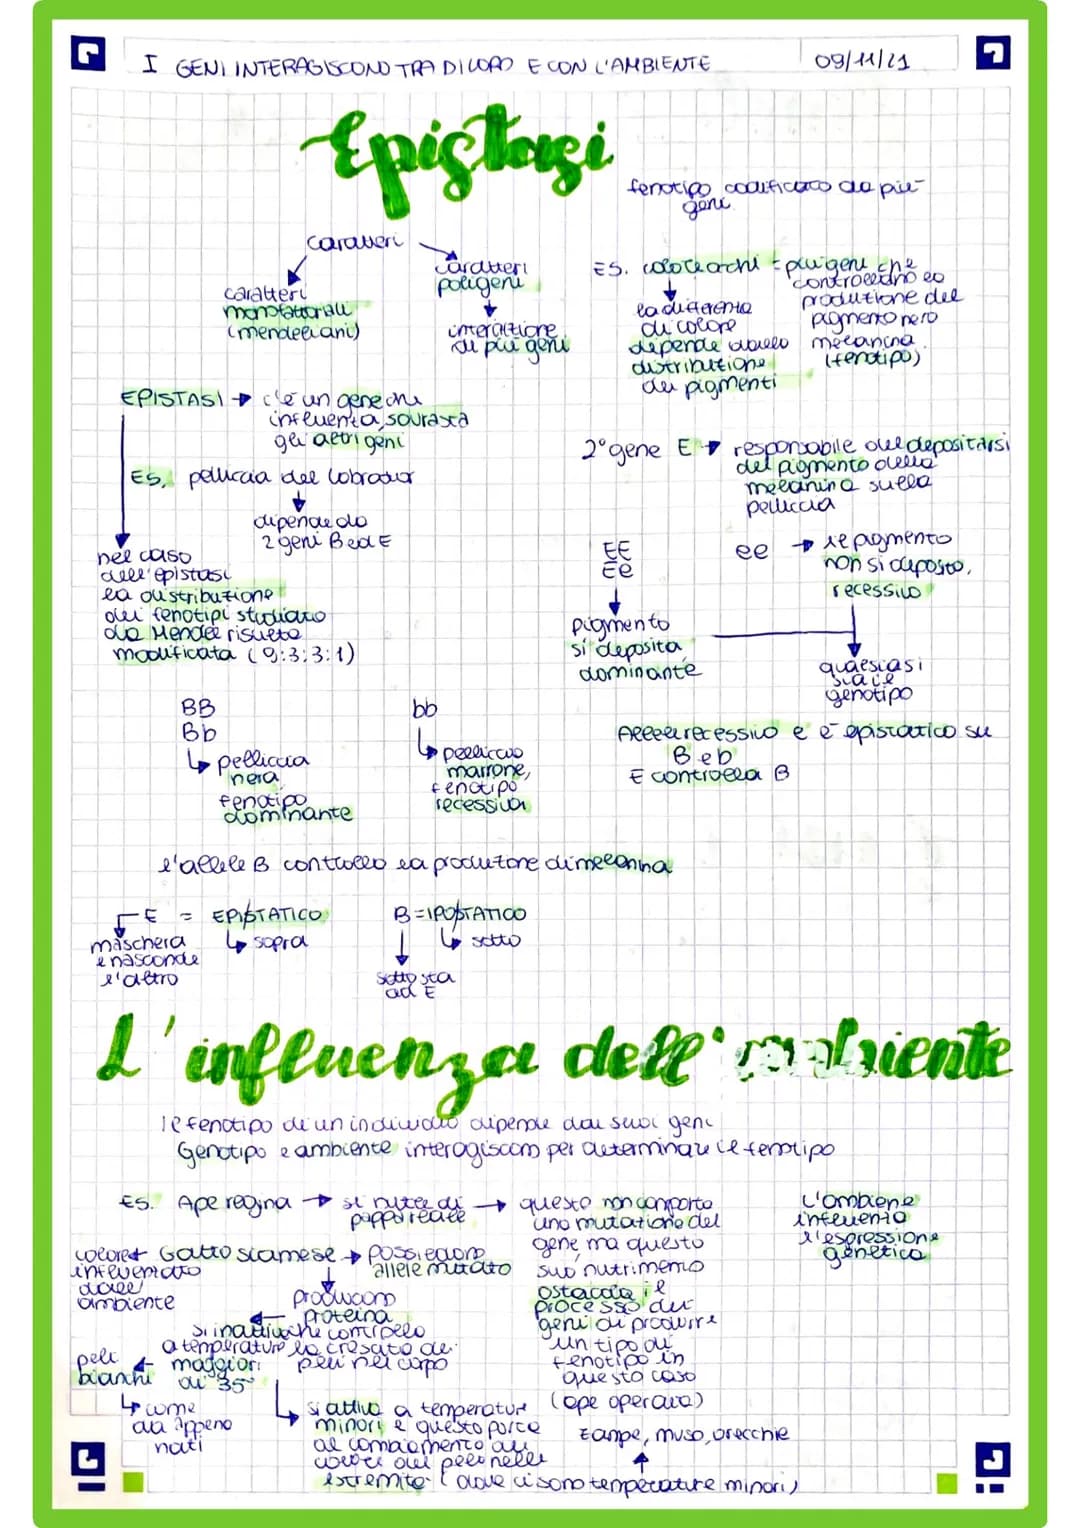 I GENI INTERAGISCONO TRA DI LORO E CON L'AMBIENTE
09/11/21
Epistasi
fenotipo codificato da più
geni
caratteri
caratteri
monofattoriali
(mendeliani)
caratteri
poligeni
interazione
di più geni
ES. colore occhi = più geni che
controllano la
produzione del
pigmento nero
melanina
(fenotipo)
la differenza
di colore
dipende dalla
distribuzione
dei pigmenti
EPISTASI → c'è un gene che
influenza, sovrasta
gli altri geni
ES. pelliccia del labrador
dipende da
2 geni B ed E
nel caso
dell'epistasi
la distribuzione
dei fenotipi studiato
da Mendel risulta
modificata (9:3:3:1)
2° gene E → responsabile del depositarsi
del pigmento della
melanina sulla
pelliccia
EE
Ee
pigmento
si deposita
dominante
ee → il pigmento
non si deposita,
recessivo
qualsiasi
sia il
genotipo
BB
Bb
pelliccia
nera
fenotipo
dominante
bb
pelliccia
marrone,
fenotipo
recessiva
Allele recessivo e è epistatico su
B e b
E controlla B
l'allele B controlla la produzione di melanina
E = EPISTATICO
maschera
e nasconde
l'altro
sopra
B = IPOSTATICO
sotto
sotto sta
ad E
L'influenza dell'ambiente
Il fenotipo di un individuo dipende dai suoi geni
Genotipo e ambiente interagiscono per determinare il fenotipo
ES. Ape regina → si nutre di
pappa reale
→ questo non comporta
una mutazione del
gene, ma questo
suo nutrimento
ostacola il
processo dei
geni di produrre
un tipo di
fenotipo in
questo caso
(ape operaia)
L'ambiene
influenza
l'espressione
genetica
colore + Gatto siamese → possiedono
allele mutato
influenzato
dall'
ambiente
producono
proteina
che controlla
la crescita dei
peli nel corpo
si inattiva
a temperature
maggiori
di 35°
peli
bianchi
come
da appena
nati
si attiva a temperature
minori e questo porta
al cambiamento del
colore dei peli nelle
estremità (dove ci sono temperature minori)
zampe, muso, orecchie